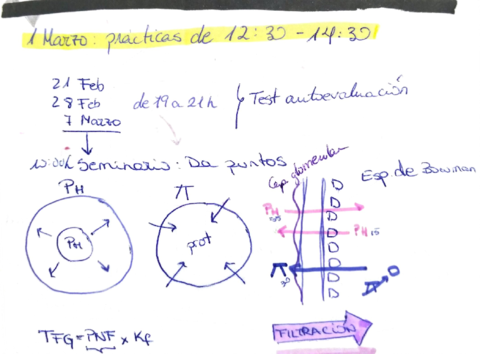 1 Marzo: prácticas de 12:30 - 14:30
21 Feb
28 Feb
7 Marzo
de 19 a 21h
Test autoevaluación
Seminario: Da puntos
PH
PH
π
prot
Cap glomerular
Esp de Bowman
PH
PH 15
π
30
π → 0
FILTRACIÓN
TFG = PNF x Kf